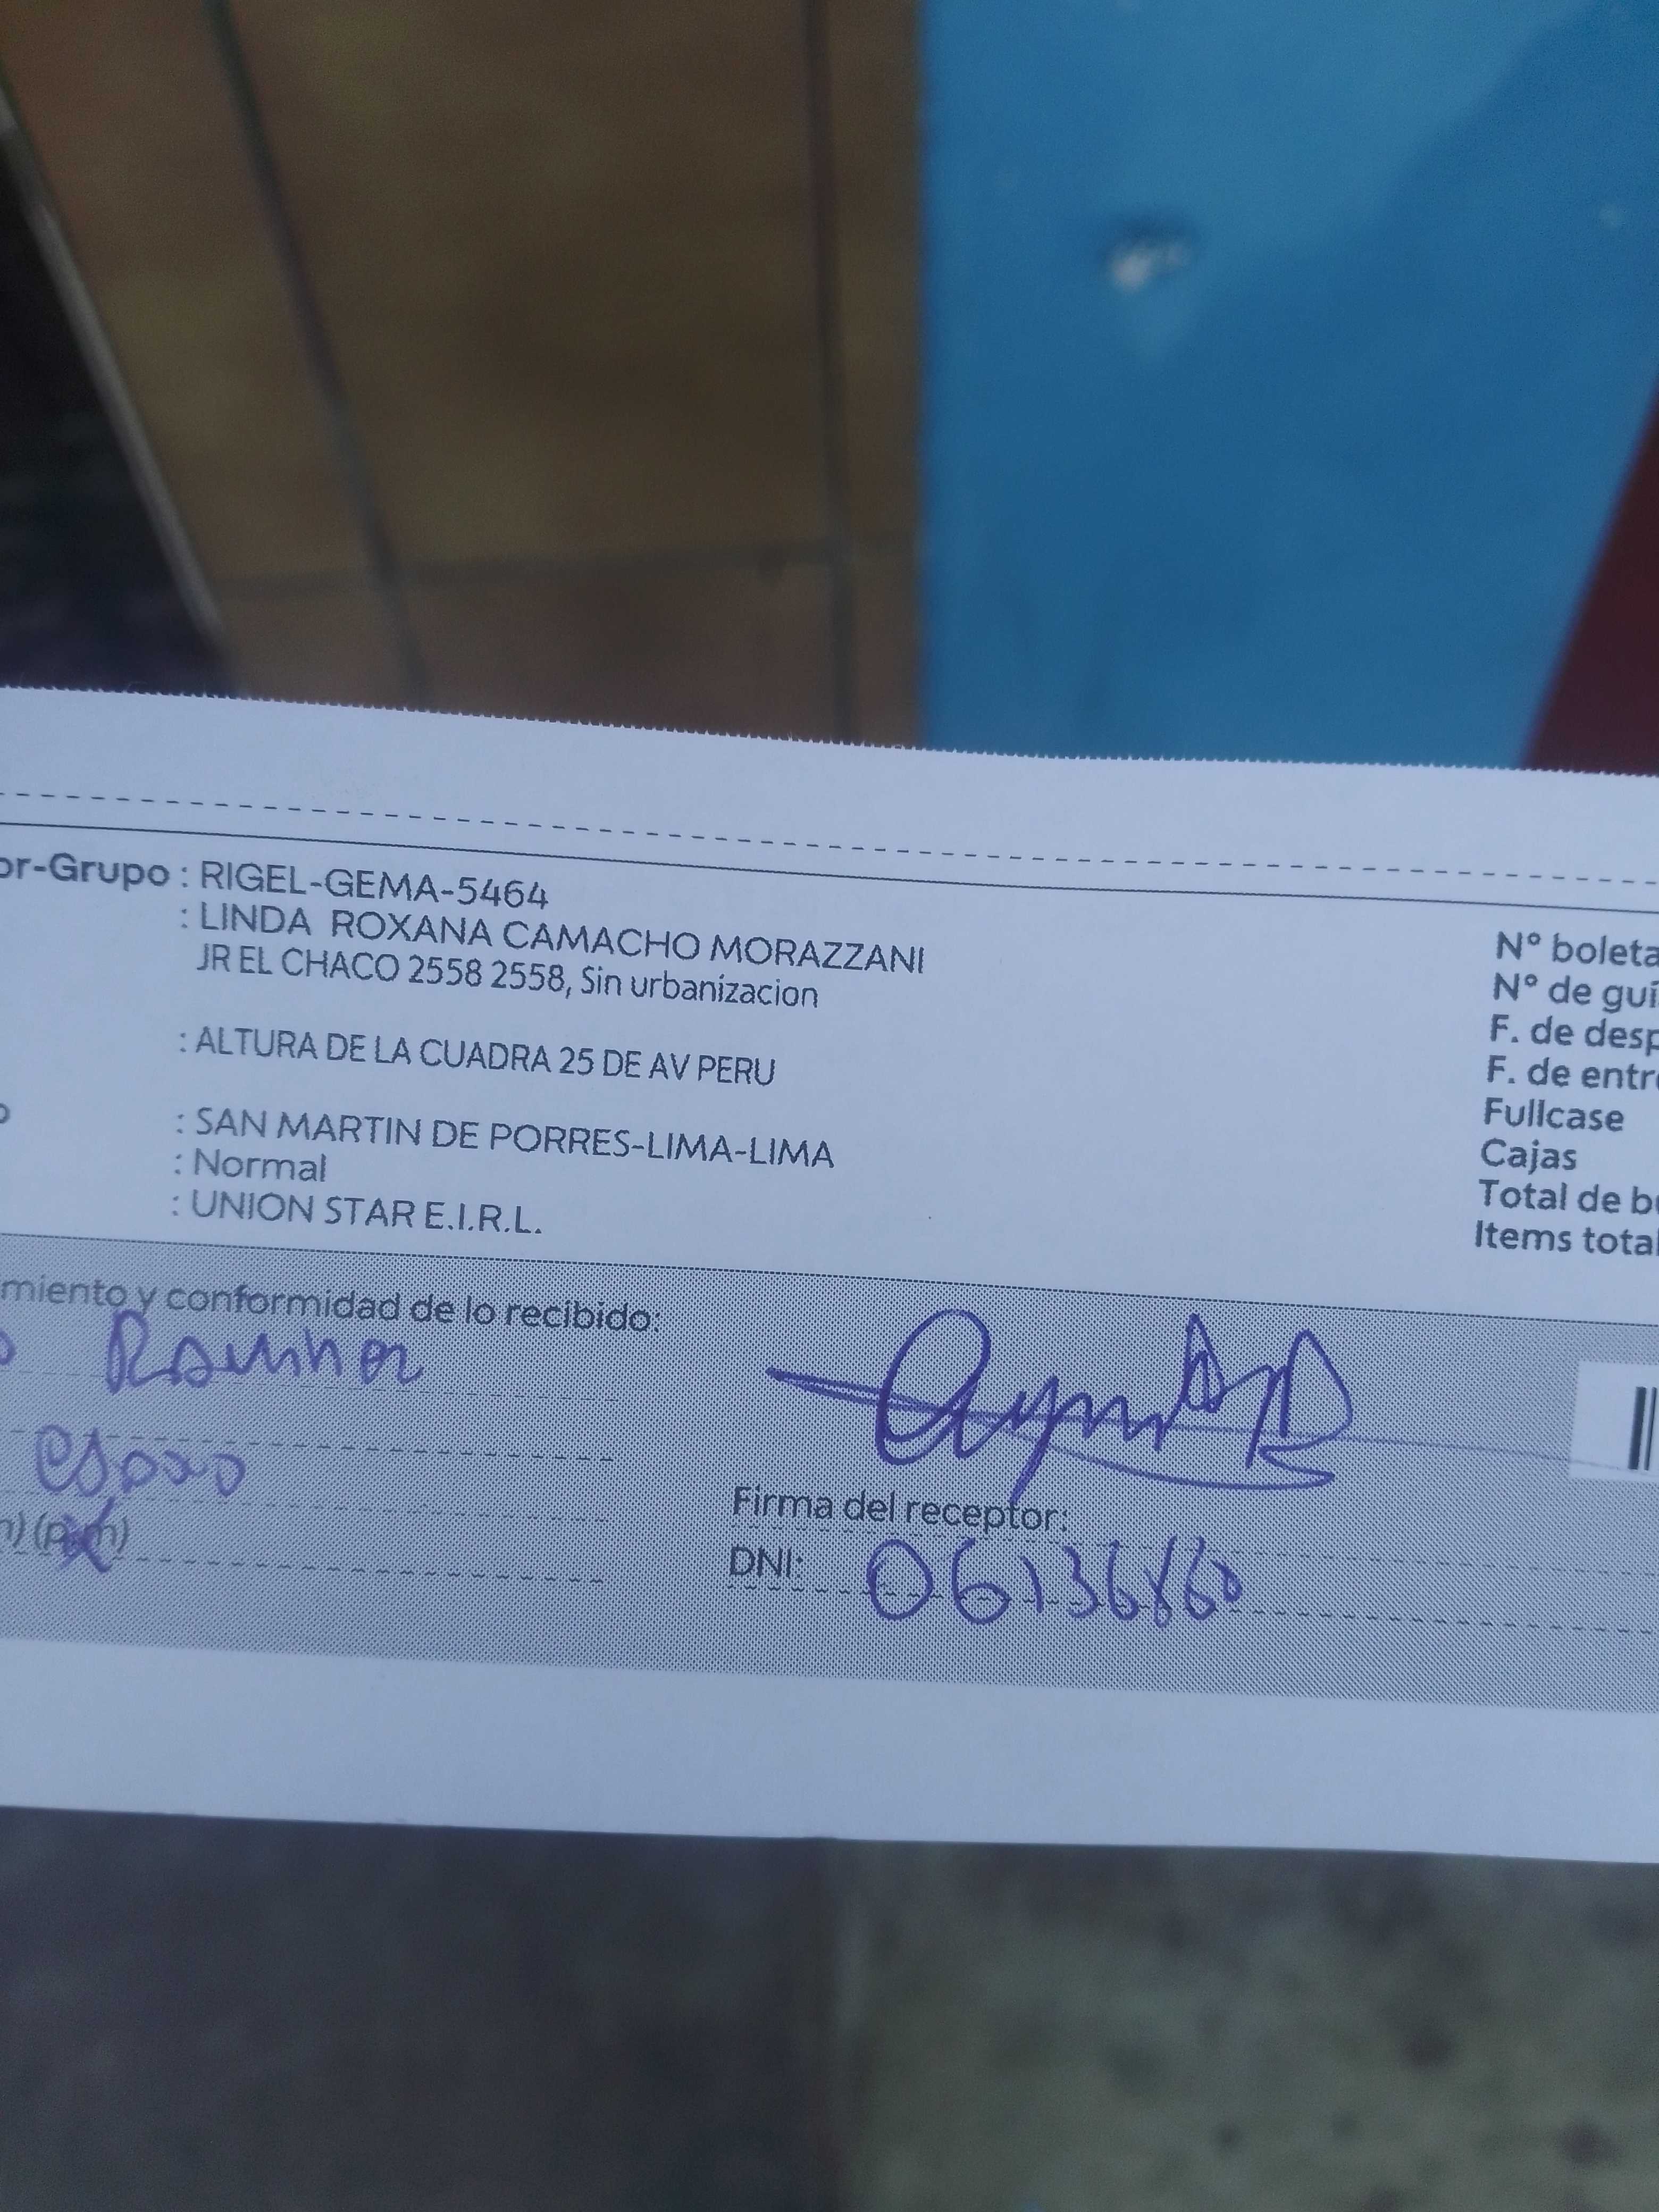 or-Grupo : RIGEL-GEMA-5464
: LINDA ROXANA CAMACHO MORAZZANI
JR EL CHACO 2558 2558, Sin urbanizacion
: ALTURA DE LA CUADRA 25 DE AV PERU
o : SAN MARTIN DE PORRES-LIMA-LIMA
: Normal
: UNION STAR E.I.R.L.
N° boleta
N° de guí
F. de desp
F. de entre
Fullcase
Cajas
Total de b
Items total
miento y conformidad de lo recibido:
esposo
Firma del receptor:
DNI: